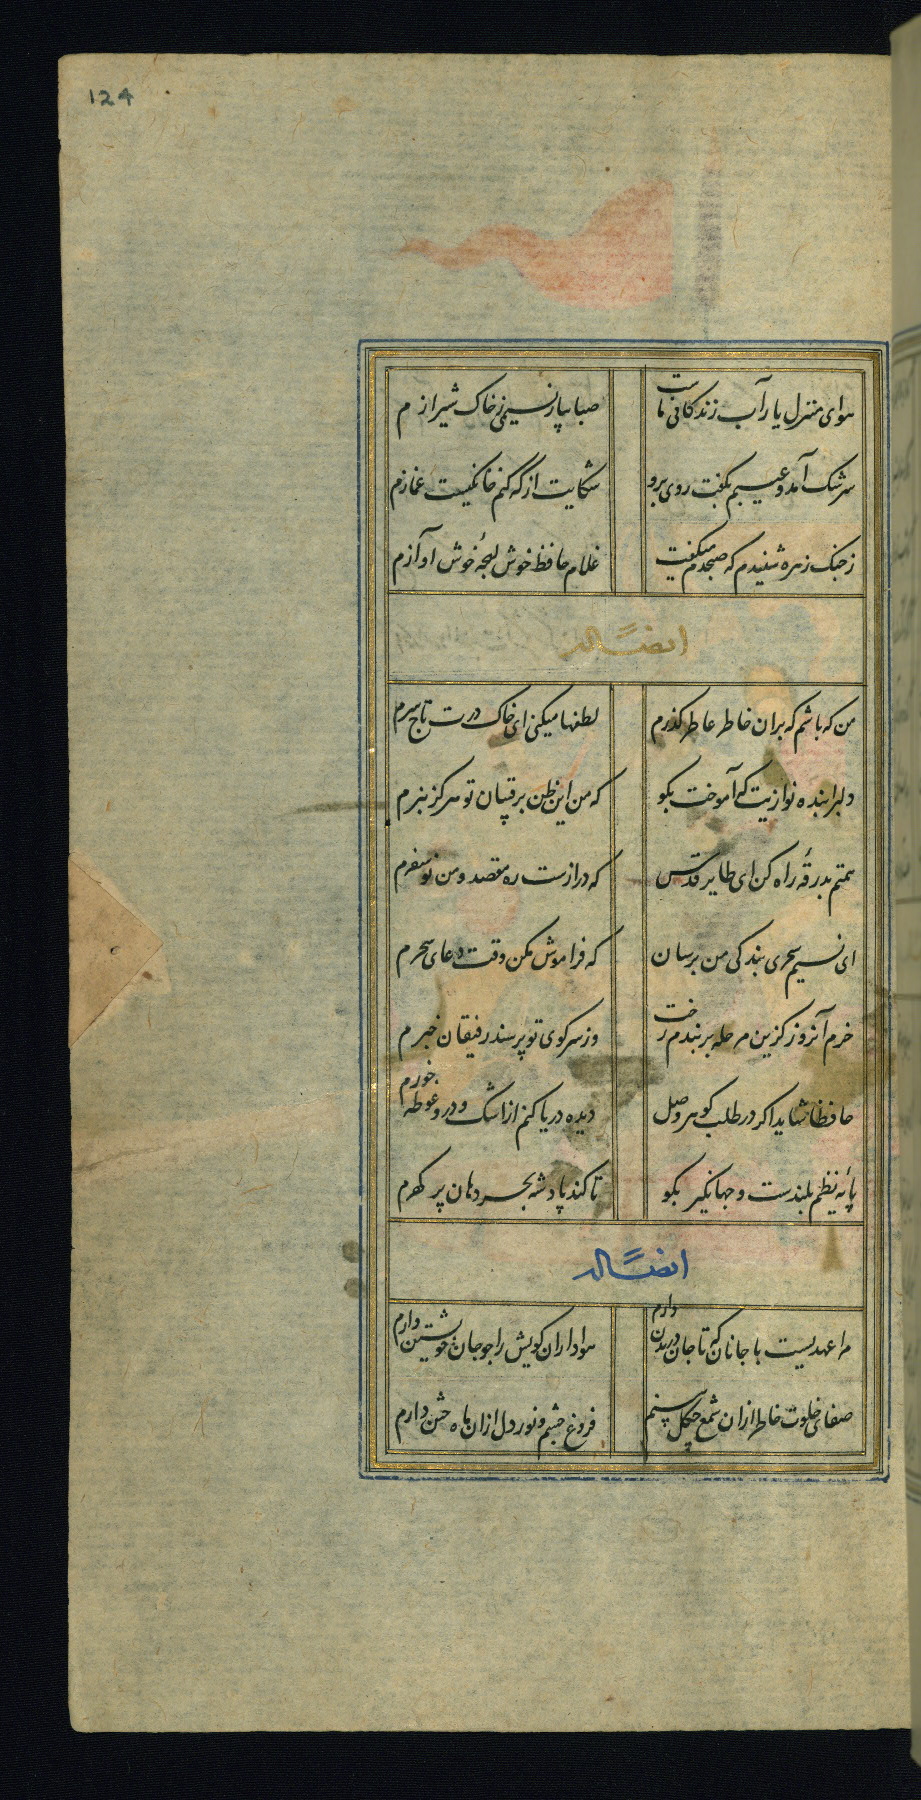 124
هوای منزل یار آب زندگانی ماست
صبا بیار نسیمی ز خاک شیرازم
سرشک آمد و عیبم بگفت روی برو
شکایت از که کنم خانگیست غمازم
ز چنگ زهره شنیدم که صبحدم میگفت
غلام حافظ خوش لهجهٔ خوش آوازم
ایضاً له
من که باشم که بران خاطر عاطر گذرم
لطفها میکنی ای خاک درت تاج سرم
دلبرا بنده نوازیت که آموخت بگو
که من این ظن برقیبان تو هرگز نبرم
همتم بدرقهٔ راه کن ای طایر قدس
که درازست ره مقصد و من نوسفرم
ای نسیم سحری بندگی من برسان
که فراموش مکن وقت دعای سحرم
خرم آنروز کزین مرحله بربندم رخت
وز سر کوی تو پرسند رفیقان خبرم
حافظا شاید اگر در طلب گوهر وصل
دیده دریا کنم از اشک و درو غوطه خورم
پائه نظم بلندست و جهانگیر بگو
تا کند پادشه بحر دهان پر گهرم
ایضاً له
مرا عهدیست با جانان که تا جان در بدن دارم
هواداران کویش را چو جان خویشتن دارم
صفای خلوت خاطر ازان شمع چگل بینم
فروغ چشم و نور دل ازان ماه ختن دارم